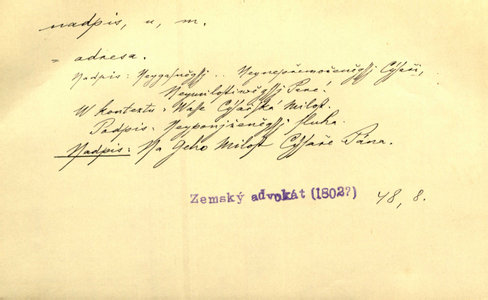 nadpis, u, m.
= adresa.
Nadpis: Neygasněgssj .. Neynepřemoženěgssj Cýsaři,
Neymilostiwěgssj Pane!
W kontextu: Wasse Cýsařská Milost.
Podpis: Neyponjženěgssj sluha.
Nadpis: Na Jeho Milost Cýsaře Pána.
Zemský advokát (1802?) 48, 8.